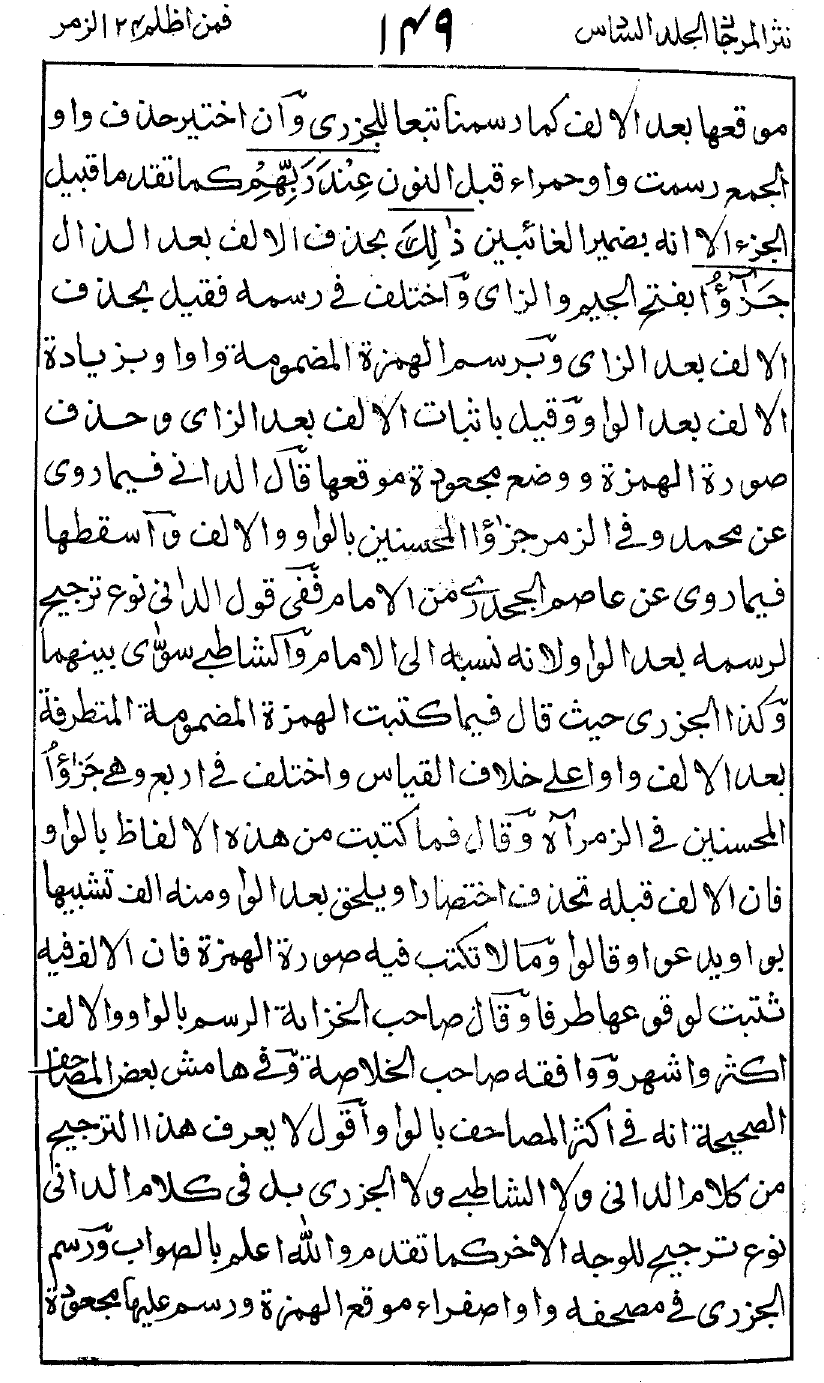 نثر المرجان الجلد السادس ١٤٩ فمن اظلم ٢٤ الزمر
موقعها بعد الالف كما رسمنا تبعا للجزرى وان اختير حذف واو
الجمع رسمت واو حمراء قبل النون عِنْدَ رَبِّهِمْ كما تقدم ما قبيل
الجزء الا انه بضمير الغائبين ذٰلِكَ بحذف الالف بعد الذال
جَزٰٓؤُا بفتح الجيم والزاى واختلف فى رسمه فقيل بحذف
الالف بعد الزاى وبرسم الهمزة المضمومة واوا وبزيادة
الالف بعد الواو وقيل باثبات الالف بعد الزاى وحذف
صورة الهمزة ووضع مجعودة موقعها قال الدانى فيما روى
عن محمد وفى الزمر جزٰؤا المحسنين بالواو والالف واسقطها
فيما روى عن عاصم الجحدرى من الامام ففى قول الدانى نوع ترجيح
لرسمه بعد الواو لانه نسبه الى الامام والشاطبى سوّى بينهما
وكذا الجزرى حيث قال فيما كتبت الهمزة المضمومة المتطرفة
بعد الالف واوا على خلاف القياس واختلف فى اربع وهى جَزٰؤُا
المحسنين فى الزمر اه وقال فما كتبت من هذه الالفاظ بالواو
فان الالف قبله تحذف اختصارا ويلحق بعد الواو منه الف تشبيها
بواو يدعوا وقالوا وما لا تكتب فيه صورة الهمزة فان الالف فيه
ثتبت لوقوعها طرفا وقال صاحب الخزانة الرسم بالواو والالف
اكثر واشهر ووافقه صاحب الخلاصة وفى هامش بعض المصاحف
الصحيحة انه فى اكثر المصاحف بالواو اقول لا يعرف هذا الترجيح
من كلام الدانى ولا الشاطبى ولا الجزرى بل فى كلام الدانى
نوع ترجيح للوجه الاخر كما تقدم والله اعلم بالصواب ورسم
الجزرى فى مصحفه واوا صفراء موقع الهمزة ورسم عليها مجعودة